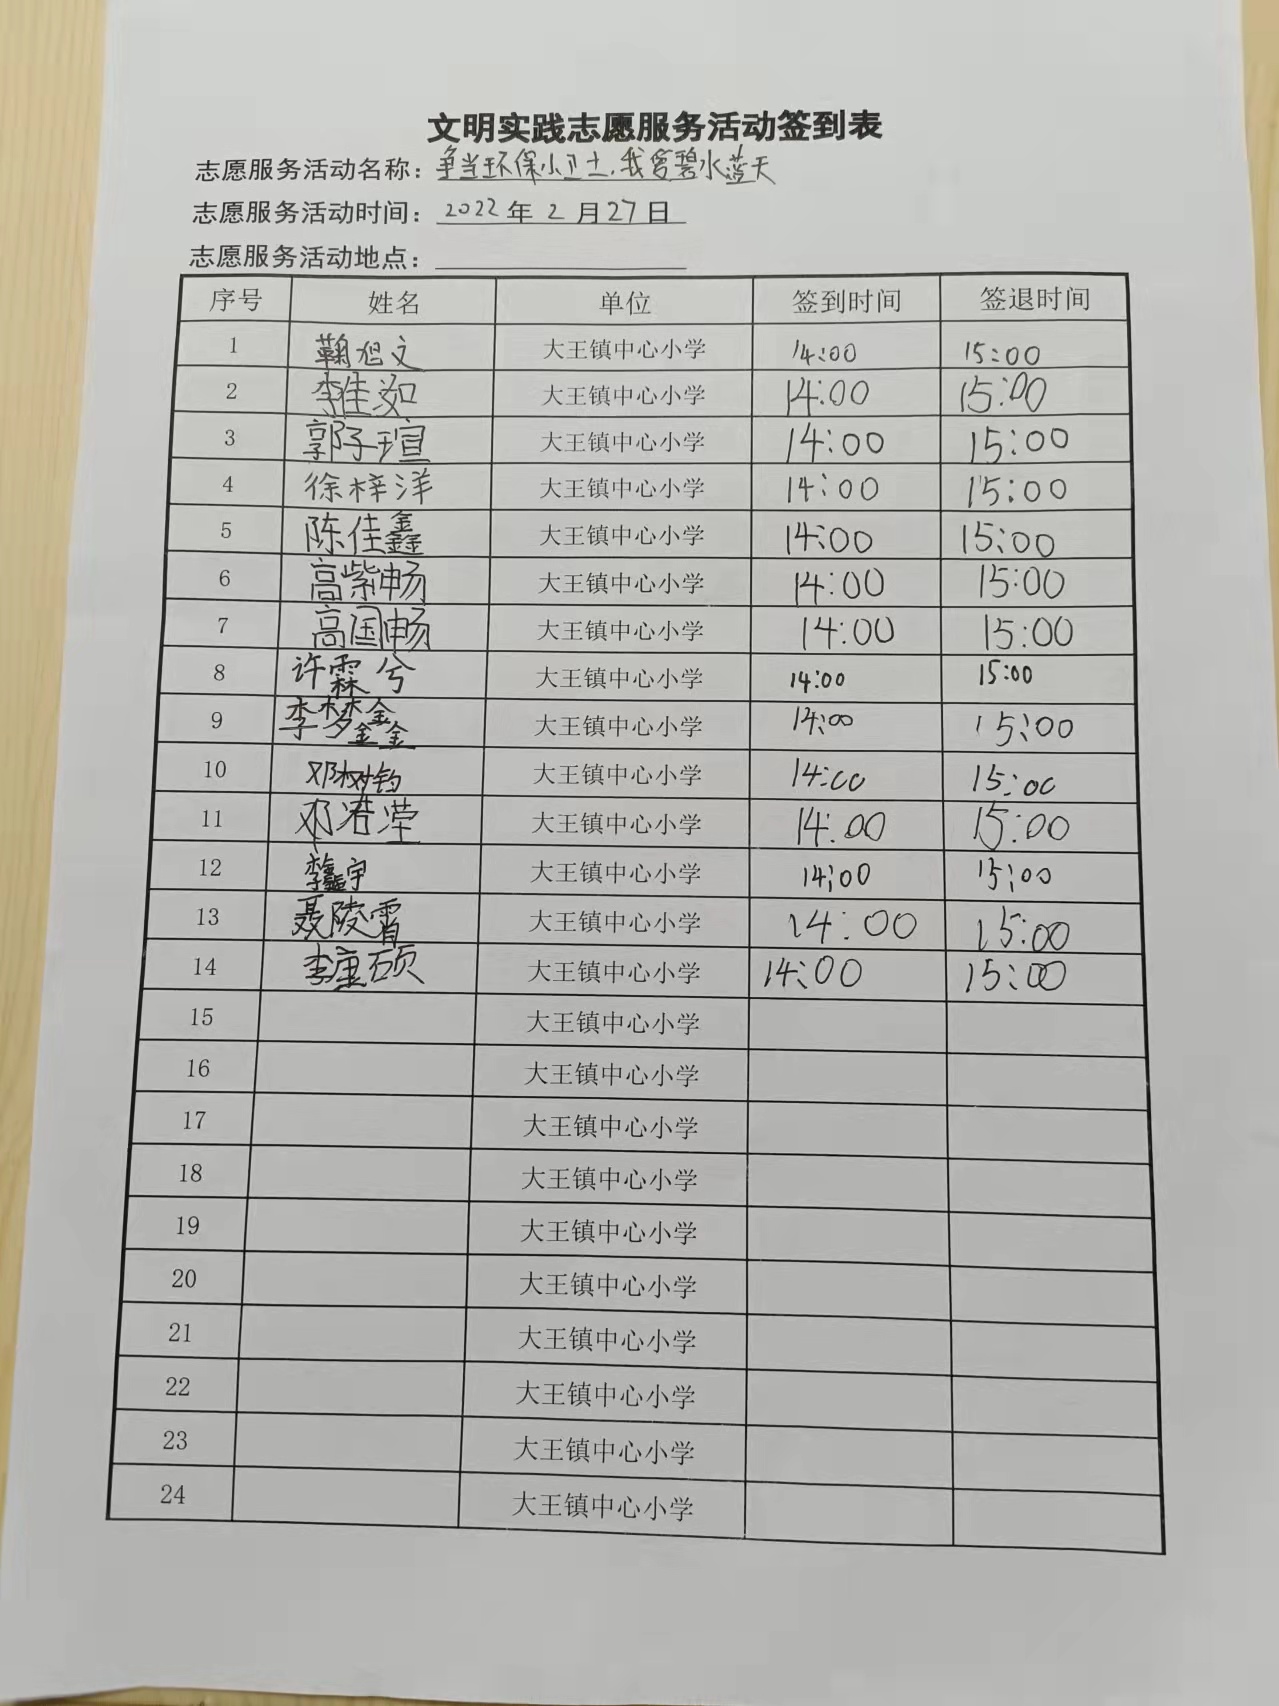 文明实践志愿服务活动签到表
志愿服务活动名称：争当环保小卫士,我爱碧水蓝天
志愿服务活动时间：2022年2月27日
志愿服务活动地点：
序号 姓名 单位 签到时间 签退时间
1 鞠旭文 大王镇中心小学 14:00 15:00
2 李佳汝 大王镇中心小学 14:00 15:00
3 郭子瑄 大王镇中心小学 14:00 15:00
4 徐梓洋 大王镇中心小学 14:00 15:00
5 陈佳鑫 大王镇中心小学 14:00 15:00
6 高紫畅 大王镇中心小学 14:00 15:00
7 高国畅 大王镇中心小学 14:00 15:00
8 许霖兮 大王镇中心小学 14:00 15:00
9 李梦鑫 大王镇中心小学 14:00 15:00
10 邓树钧 大王镇中心小学 14:00 15:00
11 邓君滢 大王镇中心小学 14:00 15:00
12 李鑫宇 大王镇中心小学 14:00 15:00
13 聂陵霄 大王镇中心小学 14:00 15:00
14 李硕 大王镇中心小学 14:00 15:00
15 大王镇中心小学
16 大王镇中心小学
17 大王镇中心小学
18 大王镇中心小学
19 大王镇中心小学
20 大王镇中心小学
21 大王镇中心小学
22 大王镇中心小学
23 大王镇中心小学
24 大王镇中心小学